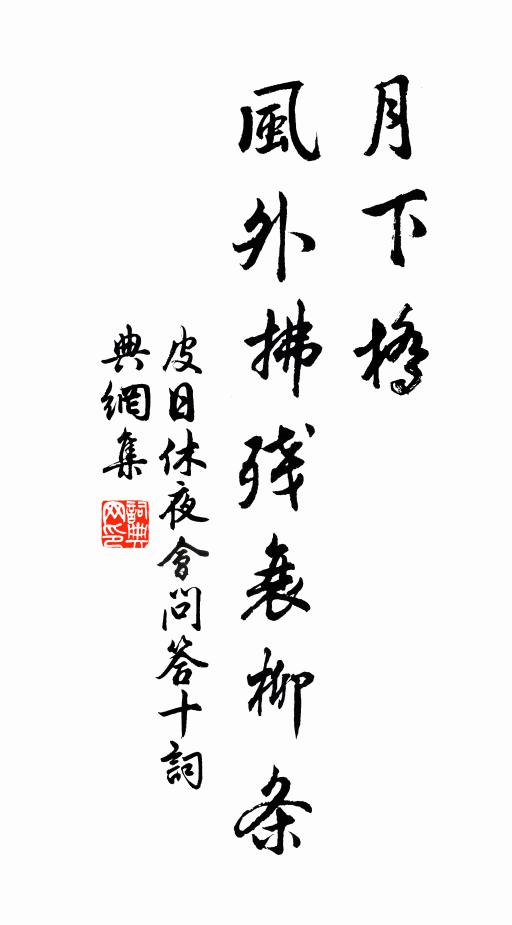 月下橋
風外拂残衰柳条
皮日休夜會問答十詞
典網集
詞典网印